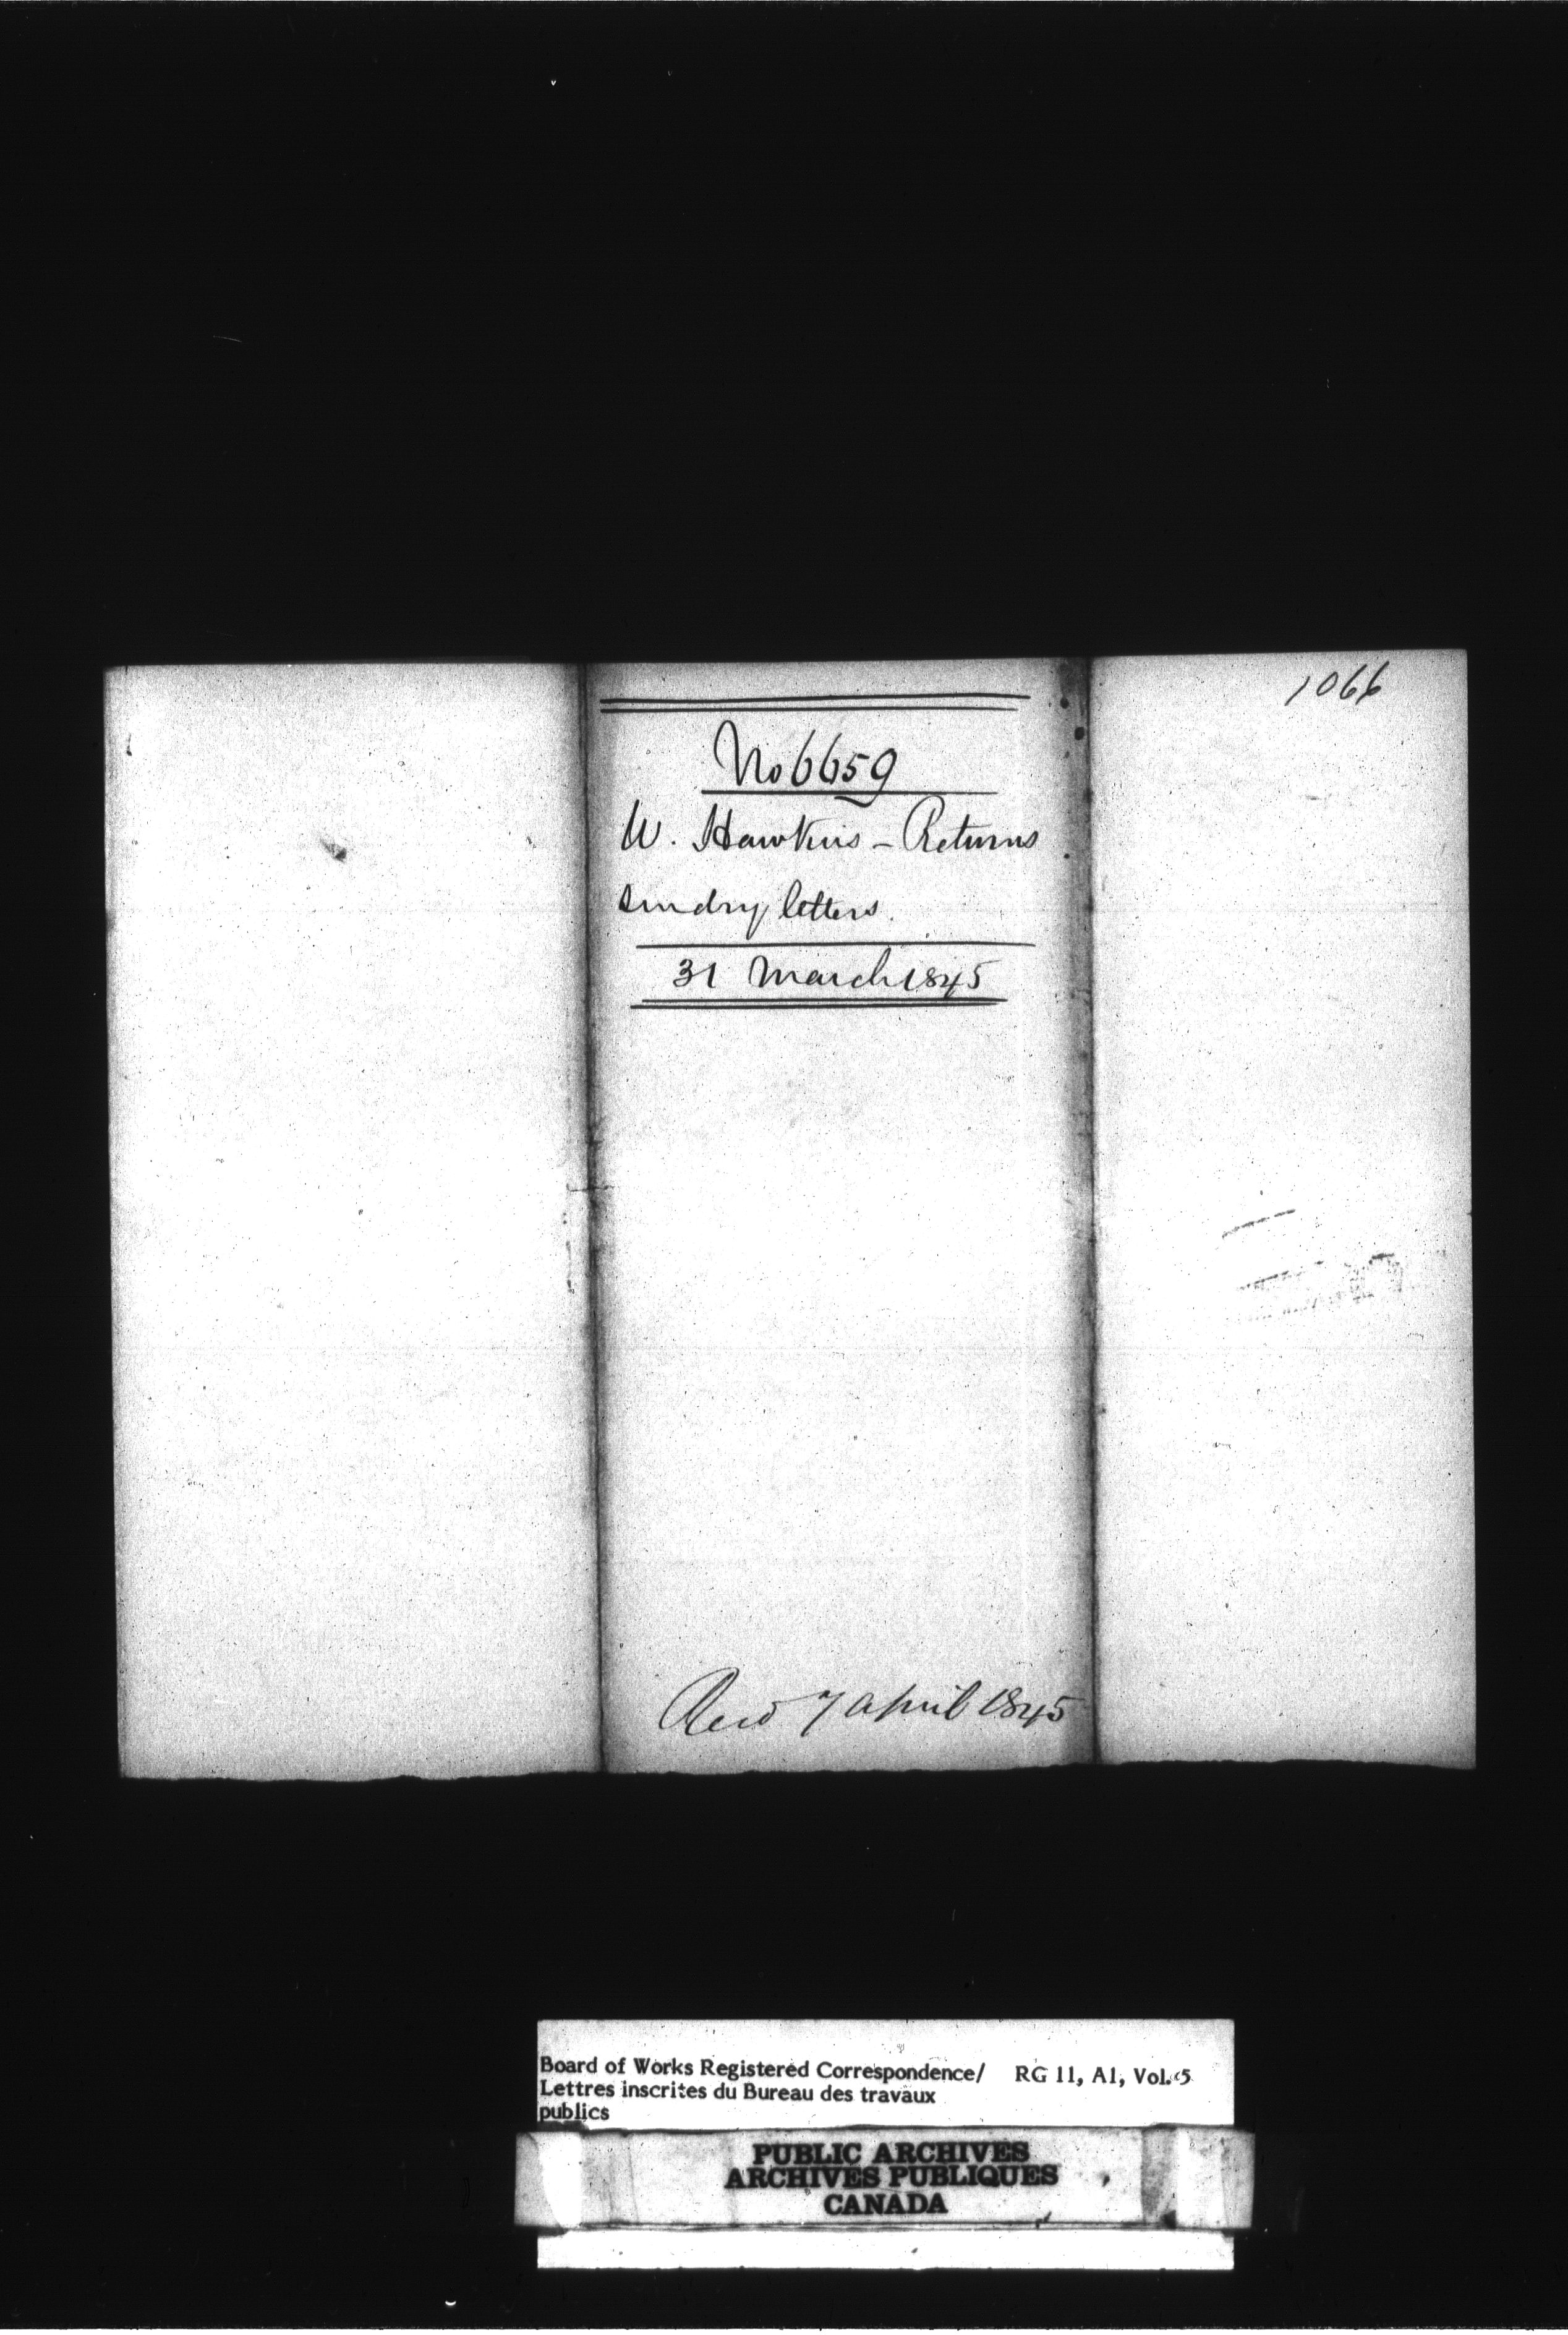 1066
No 6659
W. Hawkins - Returns
sundry letters.
31 March 1845
Recd 7 april 1845
Board of Works Registered Correspondence/ RG 11, A1, Vol. 5
Lettres inscrites du Bureau des travaux
publics
PUBLIC ARCHIVES
ARCHIVES PUBLIQUES
CANADA